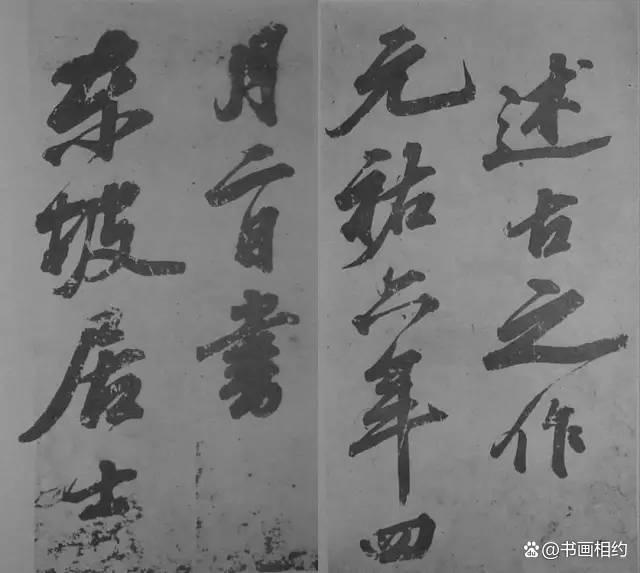 述古之作
元祐六年四
月二日書
東坡居士
@书画相约